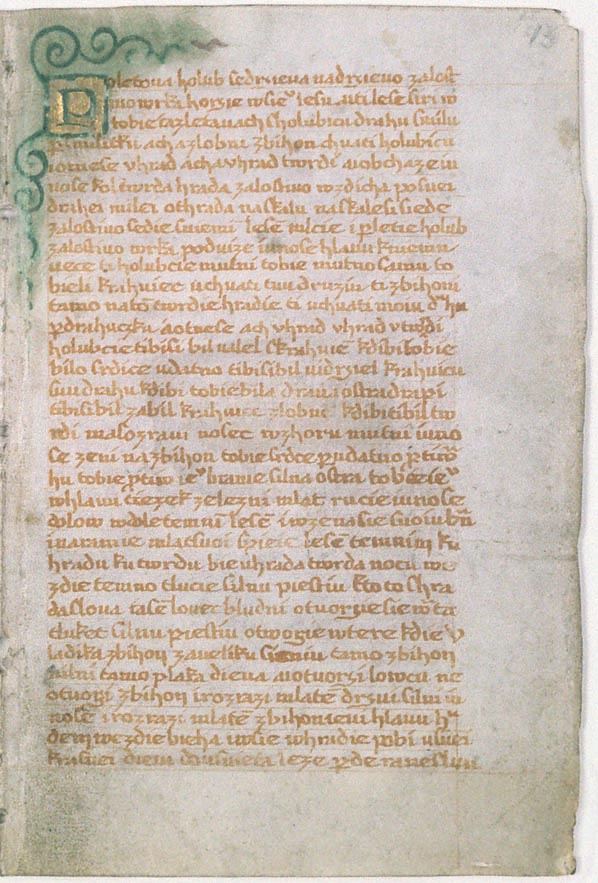 Poletova holub se drzieva na drzievo zalost
iwo wrka horzie wsiē lesu. Auti lese siri w
tobie iaz letavach s holubicu drahu s milu
p̄milutki ach a zlobni zbihon chvati holubicu
otnese vhrad ach a vhrad twrdi a vobchaze iu
nose kol twrda hrada zalostivo wzdicha po svei
drahei milei ot hrada na skalu na skale si siede
zalostivo sedie sniemi lesē mlcie i p̄letie holub
zalostivo wrka podviże iunose hlavu k niemu
vece ti holubcie mutni tobie mutno samu to
bieli krahuiec uchvati tvu druziu ti zbihoni
tamo na tō twrdie hradie ti uchvati moiu d͛hu
p̄drahuczku a otnese ach vhrad vhrad v twrdi
holubcie ti bi si bil valel s krahuiē kdibi tobie
bilo srdice udatno ti bi si bil vidrziel krahuicu
svu drahu kdibi tobie bila drava ostra drapi
ti bi si bil zabil krahuiec zlobni kdibi ti bil tw
rdi masozravi nosec wzhoru mutni iuno
se zeni na zbihon tobie srdce p̄udatno p̄ti wrō
hu tobie p̄tiw iē branie silna ostra to
w hlavu ciezek zelezni mlat rucie iunose
dolow w dole temnī lesē i wze na sie svoiu
i na ramie mlat svoi spiese lesē temnim ku
hradu ku twrdu bie v hrada twrda nocu we
zdie temno tlucie silnu piestiu kto to s hra
da slova ta sē lovec bludni otvorzie sie
tlukct silnu piestiu otworzie wtere kdie v
ladika zbihon zaveliku sieniu tamo zbihon
vilni tamo plaka dieva a otvorzi lowcu ne
otvorzi zbihon i rozrazi mlatē drzvi silni iu
nose i rozrazi mlatē zbihoniemu hlavu h͛
dem wezdie bieha i vsie w hradie pobi u svei
krasnei dievi do svieta leze p̄de rane slun